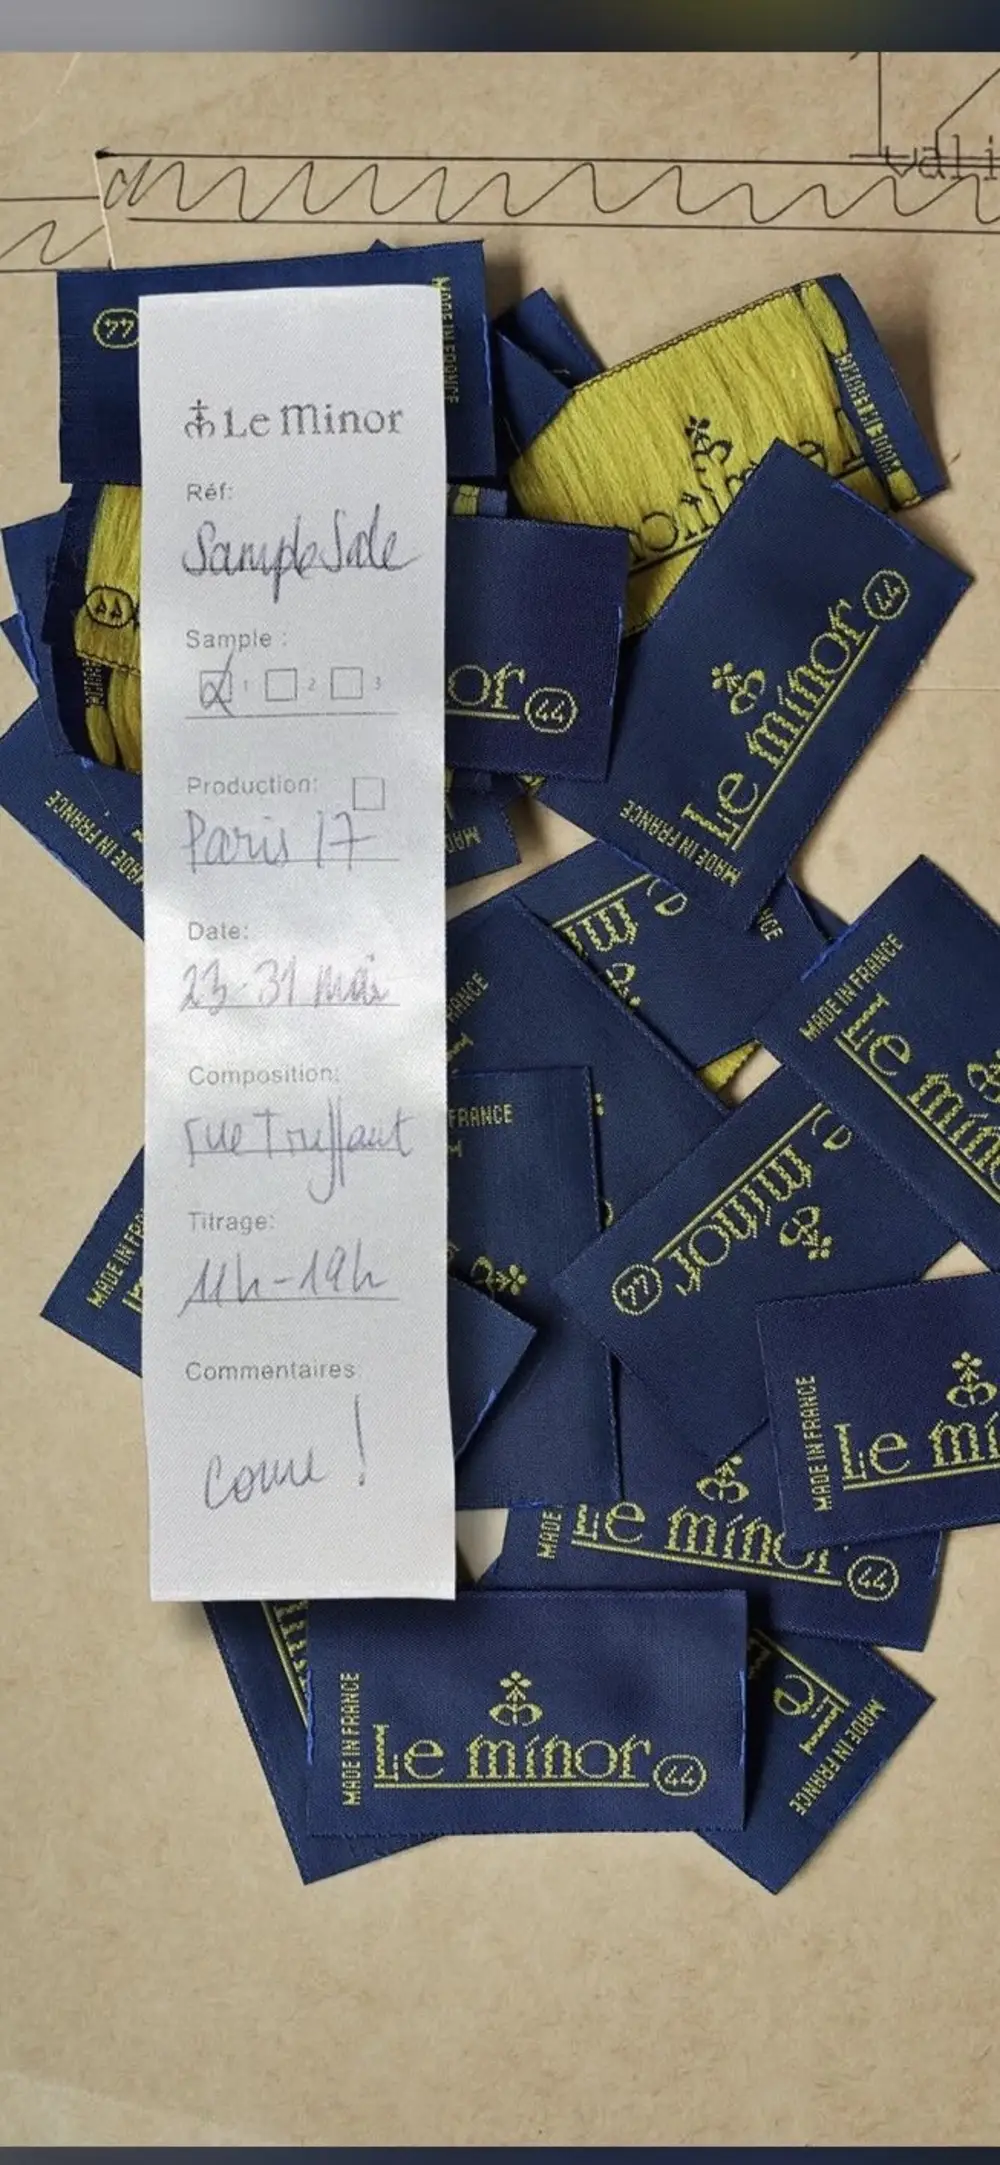 vali
44
MADE IN FRANCE
Le Minor
Réf:
Sample Sale
Sample :
1 2 3
Production:
Paris 17
Date:
23-31 mai
Composition:
rue Truffaut
Titrage:
11h-19h
Commentaires
come !
or 44
Le minor 44
MADE IN FRANCE
MADE IN FRANCE
MADE IN FRANCE
Le mino
FRANCE
minor 44
MADE IN FRANCE
Le mi
MADE
Le minor 44
MADE IN FRANCE
Le minor 44
MADE IN FRANCE